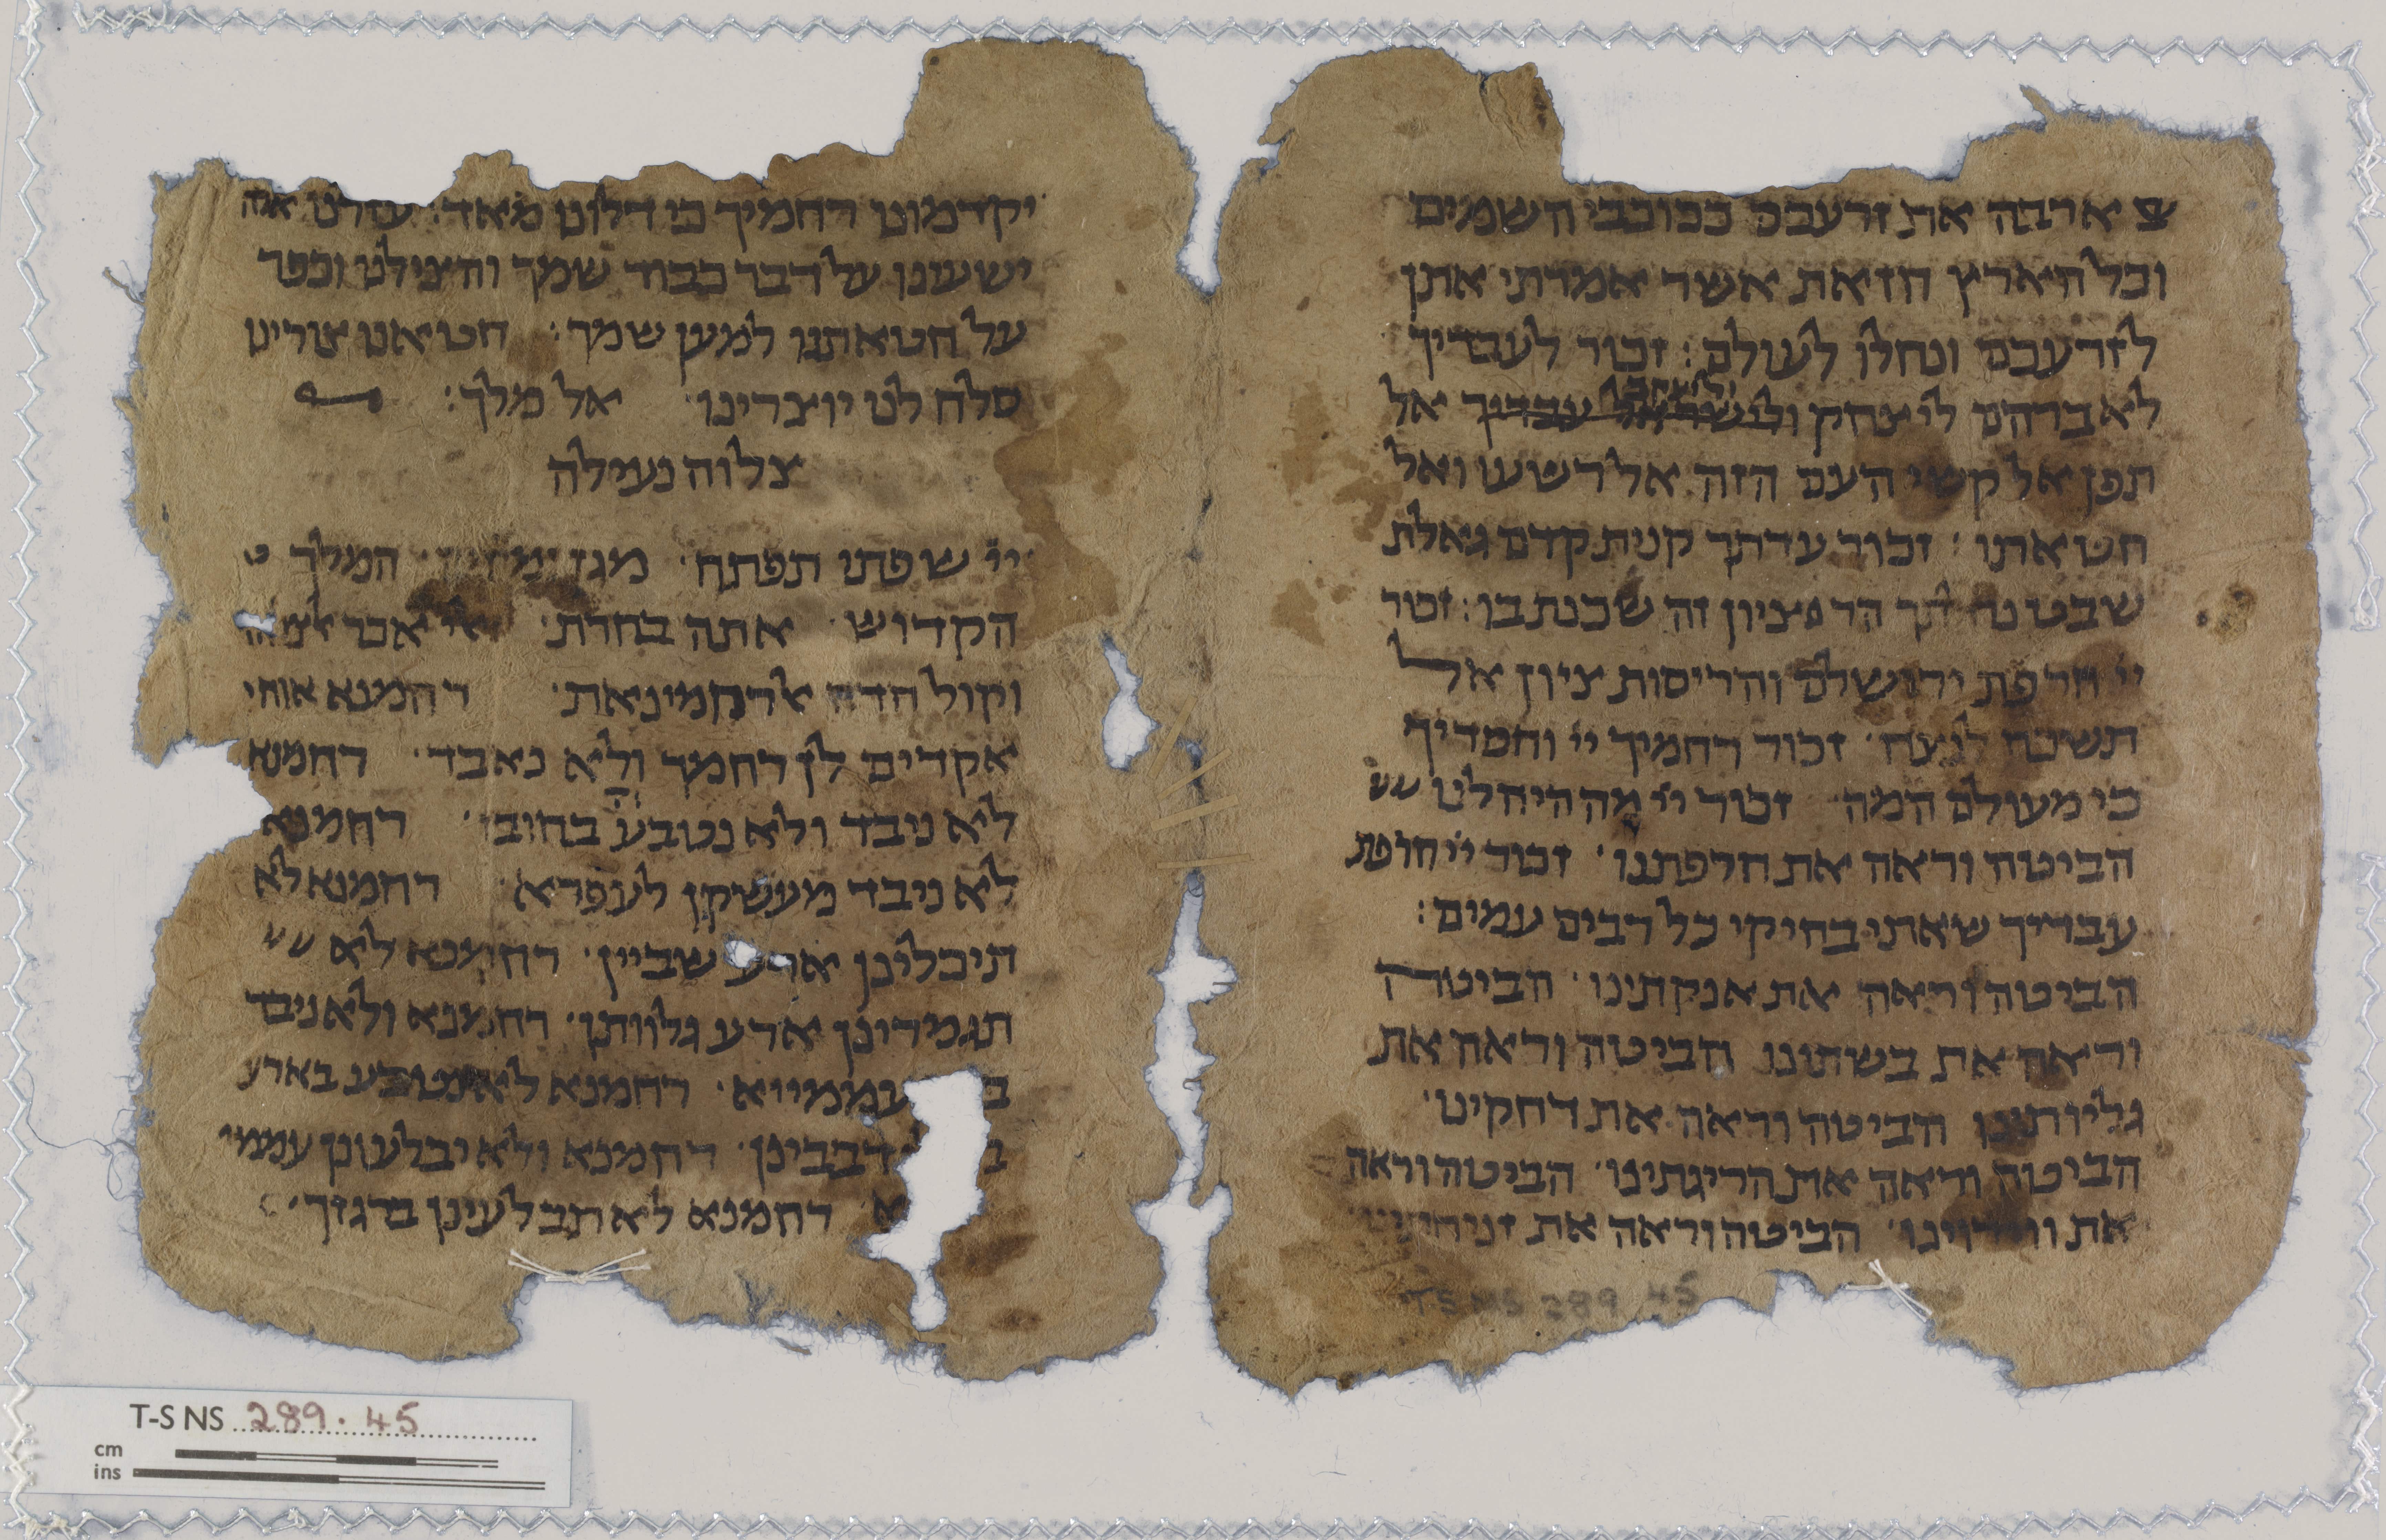 ארבה את זרעכם ככוכבי השמים
וכל הארץ הזאת אשר אמרתי אתן
לזרעכם ונחלו לעולם : זכור לעבדיך
וליעקב
לאברהם ליצחק ולישראל עבדיך אל
תפן אל קשי העם הזה אל רשעו ואל
חטאתו : זכור עדתך קנית קדם גאלת
שבט נחלתך הר ציון זה שכנת בו : זכור
יי חרפת ירושלם והריסות ציון אל
תשכח לנצח ׳ זכור רחמיך יי וחסדיך
כי מעולם המה זכור יי מה היה לנו
הביטה וראה את חרפתנו ׳ זכור יי חרפת
עבדיך שאתי בחיקי כל רבים עמים :
הביטה וראה את אנקתינו ׳ הביטה
וראה את בשתינו הביטה וראה את
גליותינו הביטה וראה את דחקינו ׳
הביטה וראה את הריגתינו ׳ הביטה וראה
את הביטה וראה את
יקדמונו רחמיך כי דלונו מאד ׳
ישעינו על דבר כבוד שמך והצילנו וכפר
על חטאתנו למען שמך : חטאנו צורינו
סלח לנו יוצרינו ׳ אל מלך :
צלוה נעילה
יי שפתי תפתח ׳ מגן המלך
הקדוש ׳ אתה בחרת ׳
וקול הדה אלרחמינאת ׳ רחמנא
אקדים לן רחמך ולא נאבד ׳ רחמנא
לא ניבד ולא נטבע בחובי ׳ רחמנא
לא ניבד מעשקין לעפרא ׳ רחמנא לא
תיכלינן ארע שביין ׳ רחמנא לא
תגמרינן ארע גלוותן ׳ רחמנא ולא ניבד
עממייא ׳ רחמנא לא נטבע בארע
דבבינן ׳ רחמנא ולא יבלעונן עממי
רחמנא לא תבלעינן ברגזך ׳
TS NS 289 45
T-S NS 289. 45
cm
ins